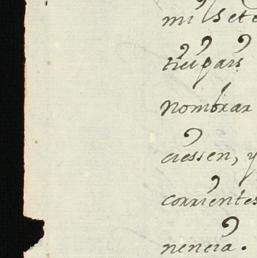 mil sete
nombrar
ciessen, y
corrientes
nencia.